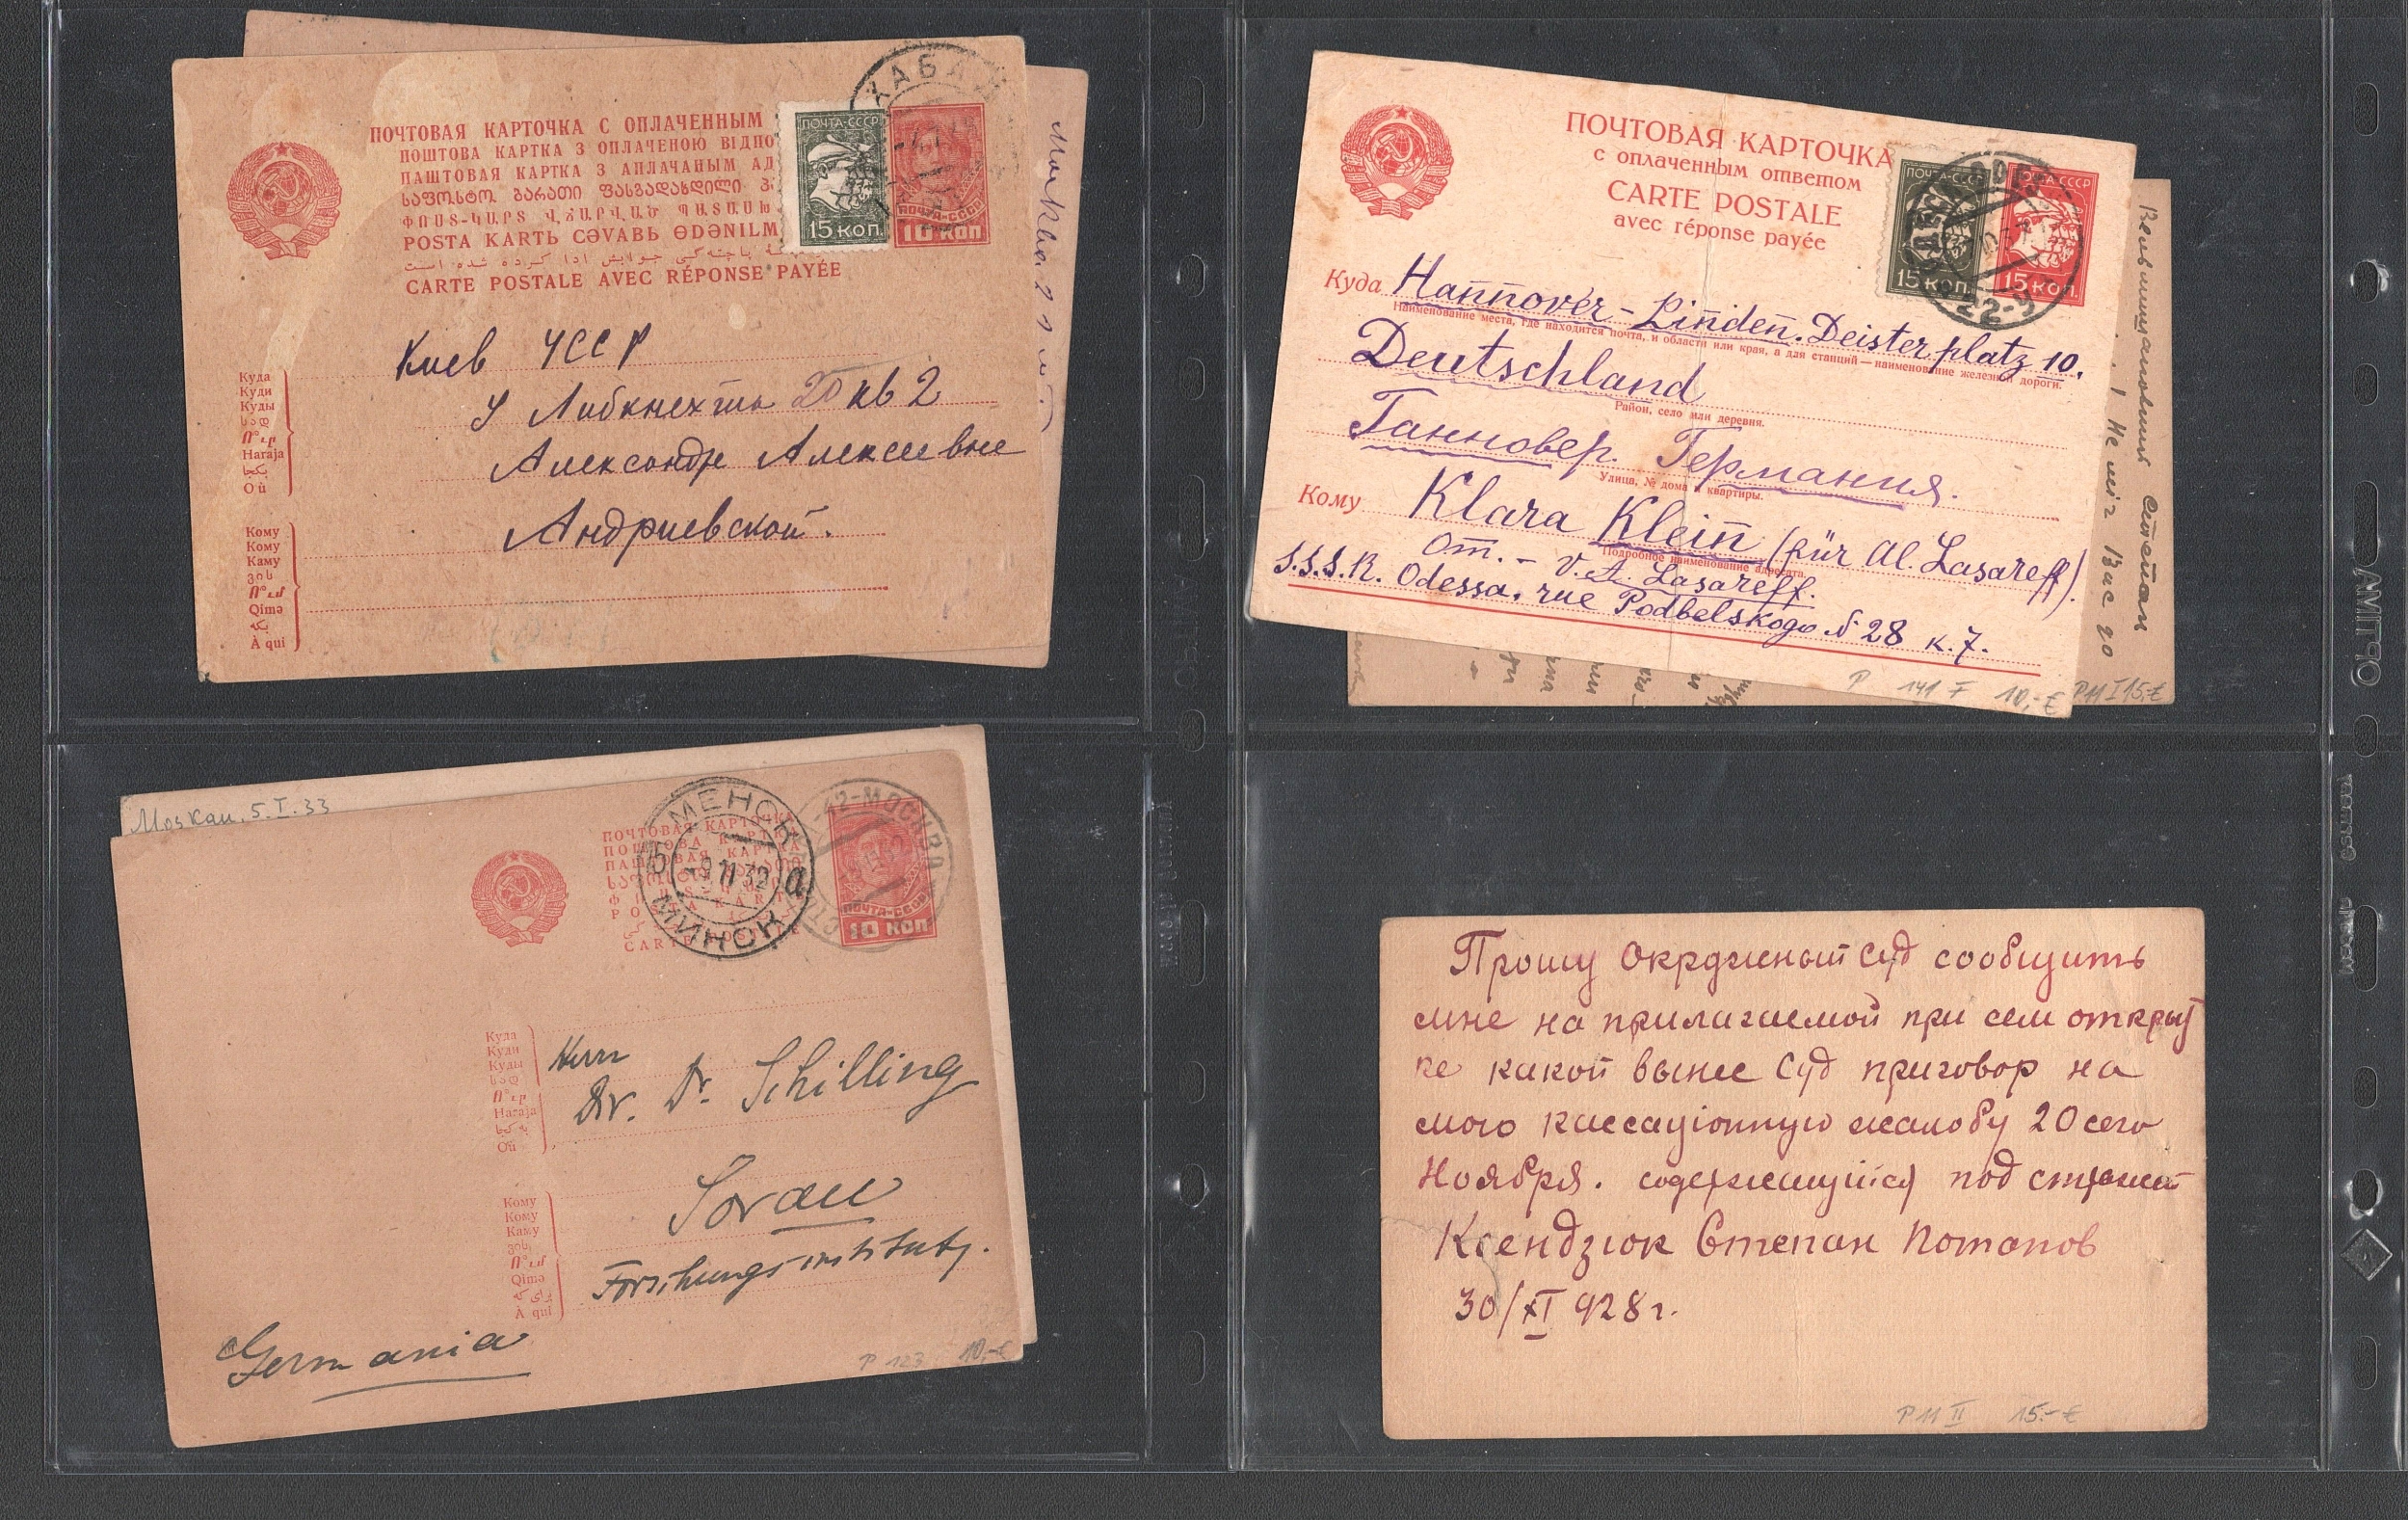 ПОЧТОВАЯ КАРТОЧКА С ОПЛАЧЕННЫМ
ПОШТОВА КАРТКА З ОПЛАЧЕНОЮ ВІДПО
ПАШТОВАЯ КАРТКА З АПЛАЧАНЫМ АД
POSTA KARTЬ CƏVABЬ ӨDƏNILM
CARTE POSTALE AVEC RÉPONSE PAYÉE
ПОЧТА-СССР
15 КОП.
ПОЧТА-СССР
10 КОП
Куда
Куди
Куды
სად
Haraja
Où
Киев УССР
У Либкнехта 20 кв 2
Александре Алексеевне
Андриевской.
Кому
Кому
Каму
ვის
Qimə
À qui
ПОЧТОВАЯ КАРТОЧКА
с оплаченным ответом
CARTE POSTALE
avec réponse payée
ПОЧТА-СССР
15 КОП.
ПОЧТА-СССР
15 КОП.
22-9
Куда Hannover-Linden. Deisterplatz 10.
Наименование места, где находится почта, и области или края, а для станций — наименование железной дороги.
Deutschland
Район, село или деревня.
Ганновер. Германия.
Улица, № дома и квартиры.
Кому Klara Klein (für Al. Lasareff).
Подробное наименование адресата.
От. - V. A. Lasareff.
S.S.S.R. Odessa. rue Podbelskogo № 28 к. 7.
P 141 F 10,-€
P11 I 15,-€
Вельмишановний Степан
Не міг Вас до
Москаu. 5.I.33
ПОЧТОВАЯ КАРТОЧКА
ПОШТОВА КАРТКА
ПАШТОВАЯ КАРТКА
CARTE POSTALE
МИНСК
42-МОСКВА
ПОЧТА-СССР
10 КОП
Куда
Куди
Куды
სად
Haraja
Où
Herrn
Dr. Dr. Schilling
Кому
Кому
Каму
ვის
Qimə
À qui
Sorau
Forschungsinstitut.
Germania
P 123 10,-€
Прошу Окружный Суд сообщить
мне на прилагаемой при сем открыт
ке какой вынес Суд приговор на
мою кассаціонную жалобу 20 сего
Ноября. содержащийся под стражей
Ксендзюк Степан Потапов
30/XI 928 г.
P11 II 15.-€